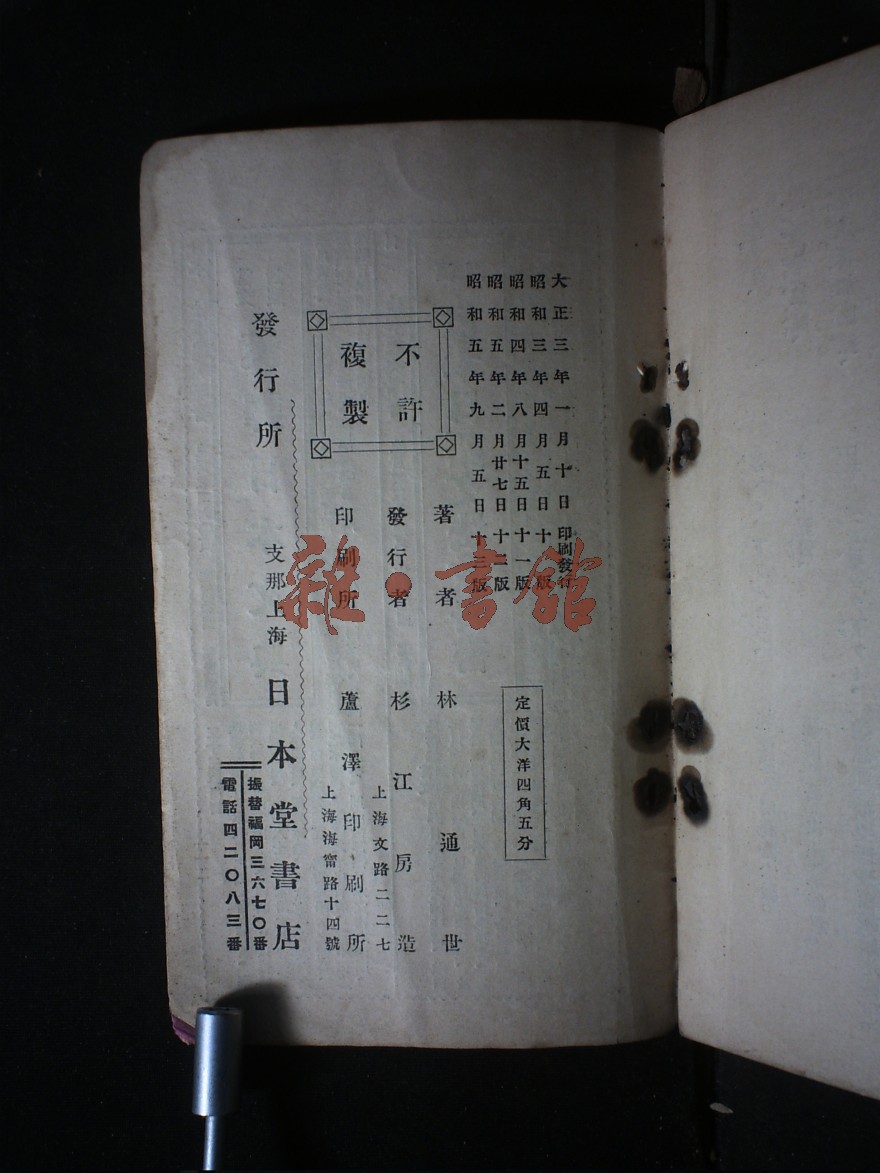 大正三年一月十日印刷發行
昭和三年四月五日十版
昭和四年八月十五日十一版
昭和五年二月廿七日十二版
昭和五年九月五日十三版
定價大洋四角五分
不許
複製
著者 林通世
發行者 杉江房造
上海文路二二七
印刷所 蘆澤印刷所
上海海甯路十四號
發行所
支那上海 日本堂書店
振替福岡三六七〇番
電話四二〇八三番
雜·書館